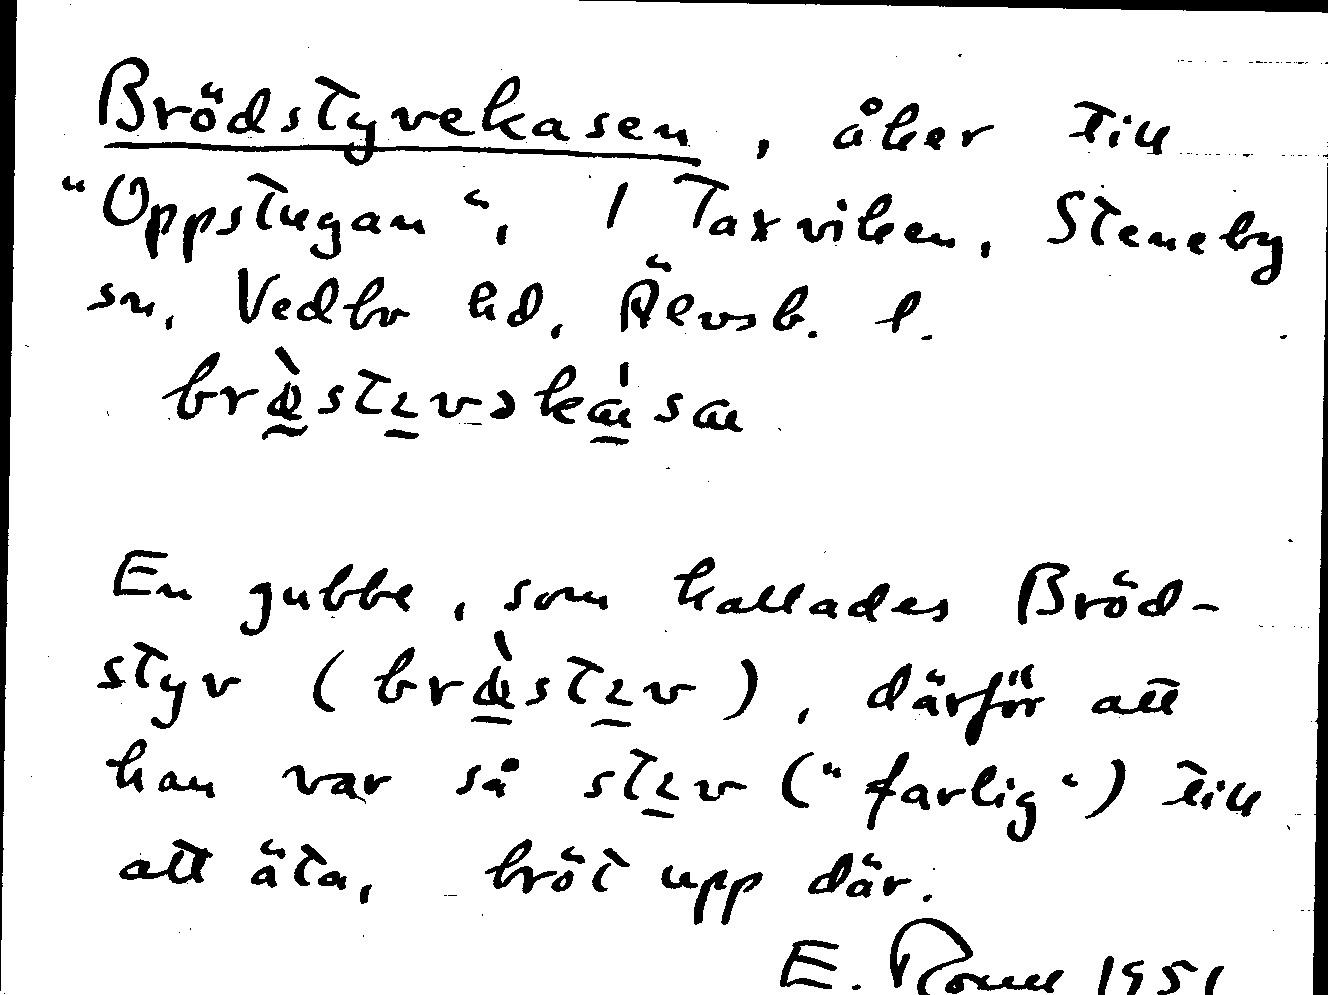 Brödstyvekasen, åker till
"Oppstugan", 1 Taxviken, Steneby
sn, Vedbo hd, Älvsb. l.
En gubbe, som kallades Bröd-
styv ( ), därför att
han var så ("farlig") till
att äta, bröt upp där.
E. 1951